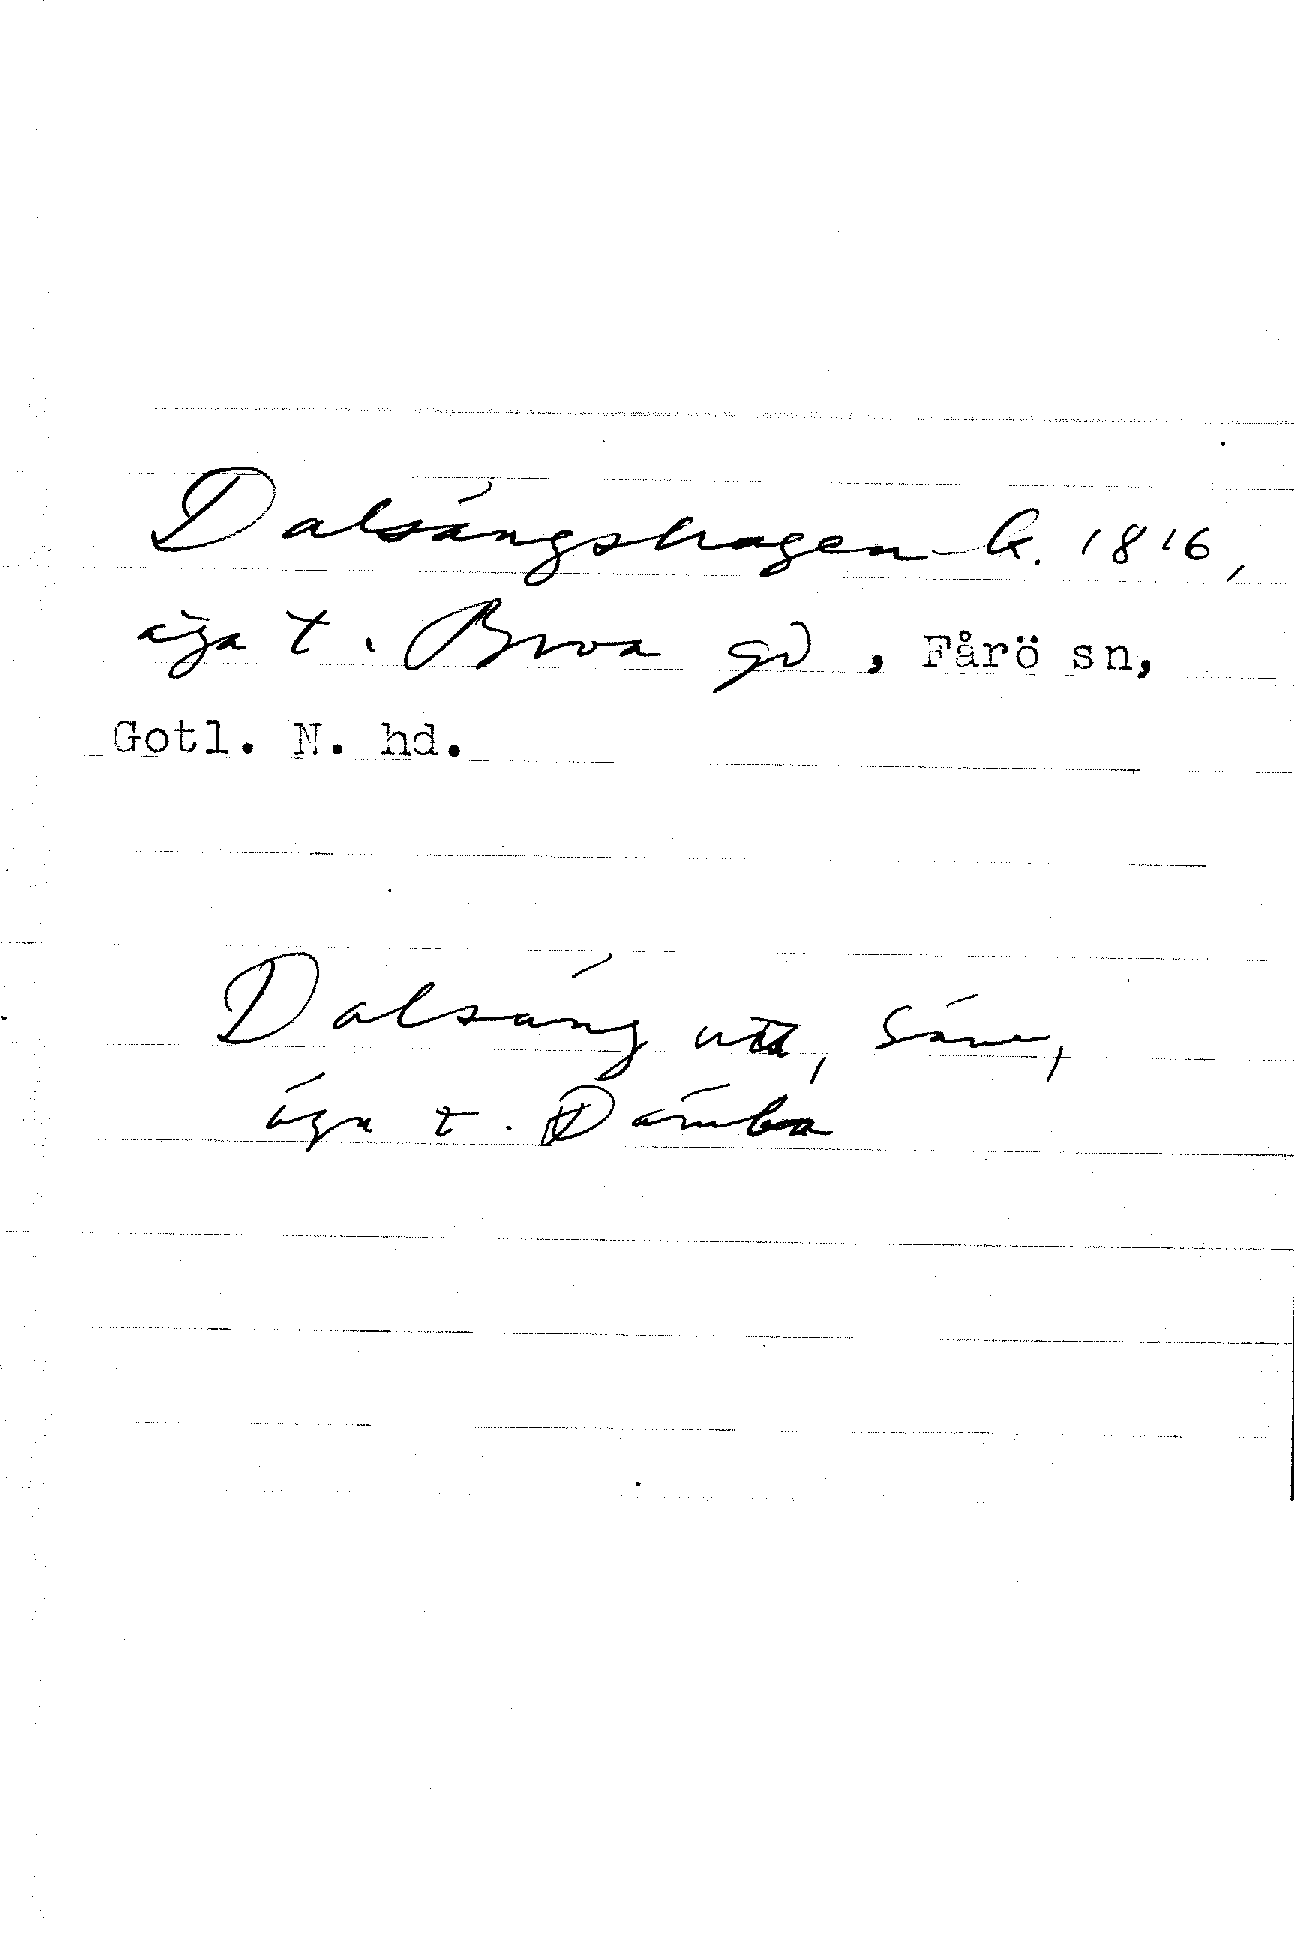 Dalsängshagen k. 1816,
äga t. Broa gd, Fårö sn,
Gotl. N. hd.
Dalsäng utr, Säm,
äga t. Dämba